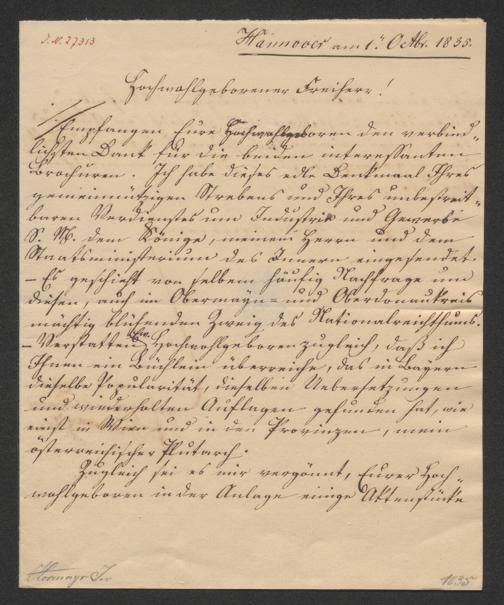 J. N. 27313
Hannover am 1t. Octbr. 1835.
Hochwohlgeborener Freiherr!
Empfangen Eure Hochwohlgeboren den verbind=
lichsten Dank für die beiden interessanten
Brochuren. Ich habe dieses edle Denkmaal Ihres
gemeinnützigen Strebens und Ihres unbestreit=
baren Verdienstes um Industrie und Gewerbe
S. M. dem Könige, meinem Herrn und dem
Staatsministerium des Innern eingesendet.
– Es geschieht von selbem häufig Nachfrage um
diesen, auch im Obermayn= und Oberdonaukreis
mächtig blühenden Zweig des Nationalreichthums.
– Verstatten Euer Hochwohlgeboren zugleich, daß ich
Ihnen ein Büchlein überreiche, das in Bayern
dieselbe Popularität, dieselben Uebersetzungen
und wiederholten Auflagen gefunden hat, wie
einst in Wien und in den Provinzen, mein
österreichischer Plutarch.
Zugleich sei es mir vergönnt, Eurer Hoch=
wohlgeboren in der Anlage einige Aktenstücke
Hormayr Jos
1835